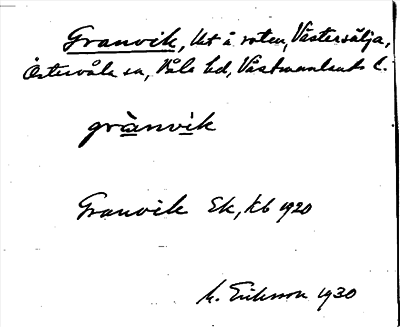 Granvik, Ut å roten, Västersälja,
Östervåla sn, Våla hd, Västmanlands l.
grànvik
Granvik Ek, kb 1920
M. Eriksson 1930